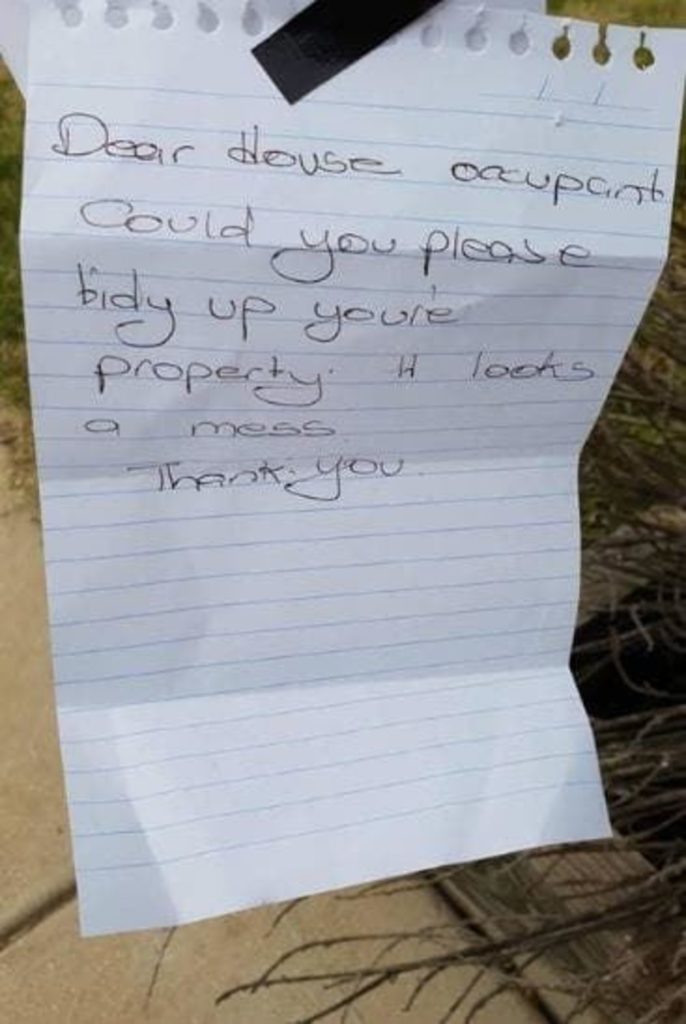 Dear House occupant
Could you please
tidy up you're
property. It looks
a mess
Thank.you.